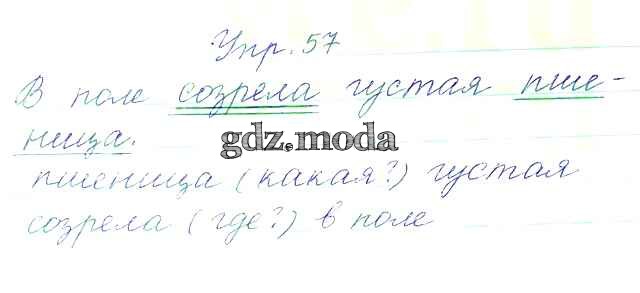 Упр. 57
В поле созрела густая пше-
ница.
gdz.moda
пшеница (какая?) густая
созрела (где?) в поле